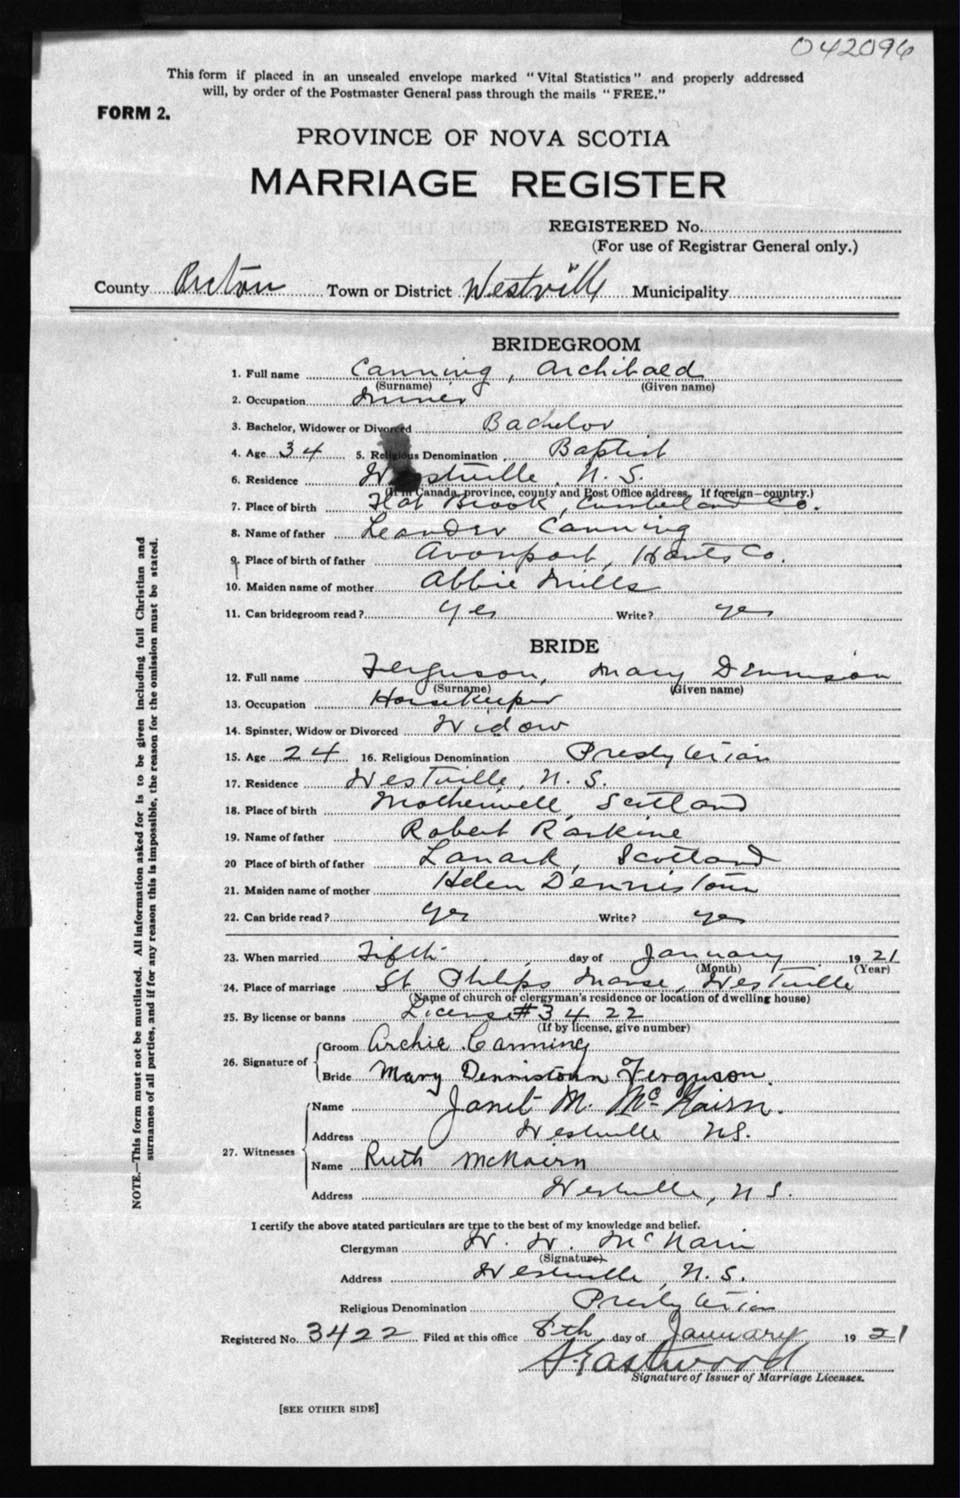 042096
This form if placed in an unsealed envelope marked "Vital Statistics" and properly addressed
will, by order of the Postmaster General pass through the mails "FREE."
FORM 2.
PROVINCE OF NOVA SCOTIA
MARRIAGE REGISTER
REGISTERED No.
(For use of Registrar General only.)
County Pictou Town or District Westville Municipality
BRIDEGROOM
1. Full name Canning, Archibald
(Surname) (Given name)
2. Occupation Miner
3. Bachelor, Widower or Divorced Bachelor
4. Age 34 5. Religious Denomination Baptist
6. Residence Westville, N. S.
(If in Canada, province, county and Post Office address. If foreign—country.)
7. Place of birth Brook, Cumberland Co.
8. Name of father Leander Canning
9. Place of birth of father Avonport, Hants Co.
10. Maiden name of mother Abbie Mills
11. Can bridegroom read? Yes Write? yes
BRIDE
12. Full name Ferguson, Mary Dennison
(Surname) (Given name)
13. Occupation Housekeeper
14. Spinster, Widow or Divorced Widow
15. Age 24 16. Religious Denomination Presbyterian
17. Residence Westville, N. S.
18. Place of birth Motherwell, Scotland
19. Name of father Robert Raskine
20 Place of birth of father Lanark, Scotland
21. Maiden name of mother Helen Dennistoun
22. Can bride read? Yes Write? yes
23. When married Fifth day of January 1921
(Month) (Year)
24. Place of marriage St Philips Manse, Westville
(Name of church or clergyman's residence or location of dwelling house)
25. By license or banns License #3422
(If by license, give number)
26. Signature of Groom Archie Canning
Bride Mary Dennistoun Ferguson.
27. Witnesses Name Janet M. McNairn.
Address Westville N.S.
Name Ruth McNairn
Address Westville, N S.
I certify the above stated particulars are true to the best of my knowledge and belief.
Clergyman W. W. McNairn
(Signature)
Address Westville N. S.
Religious Denomination Presbyterian
Registered No. 3422 Filed at this office 8th day of January 1921
S Eastwood
Signature of Issuer of Marriage Licenses.
[SEE OTHER SIDE]
NOTE.—This form must not be mutilated. All information asked for is to be given including full Christian and
surnames of all parties, and if for any reason this is impossible, the reason for the omission must be stated.